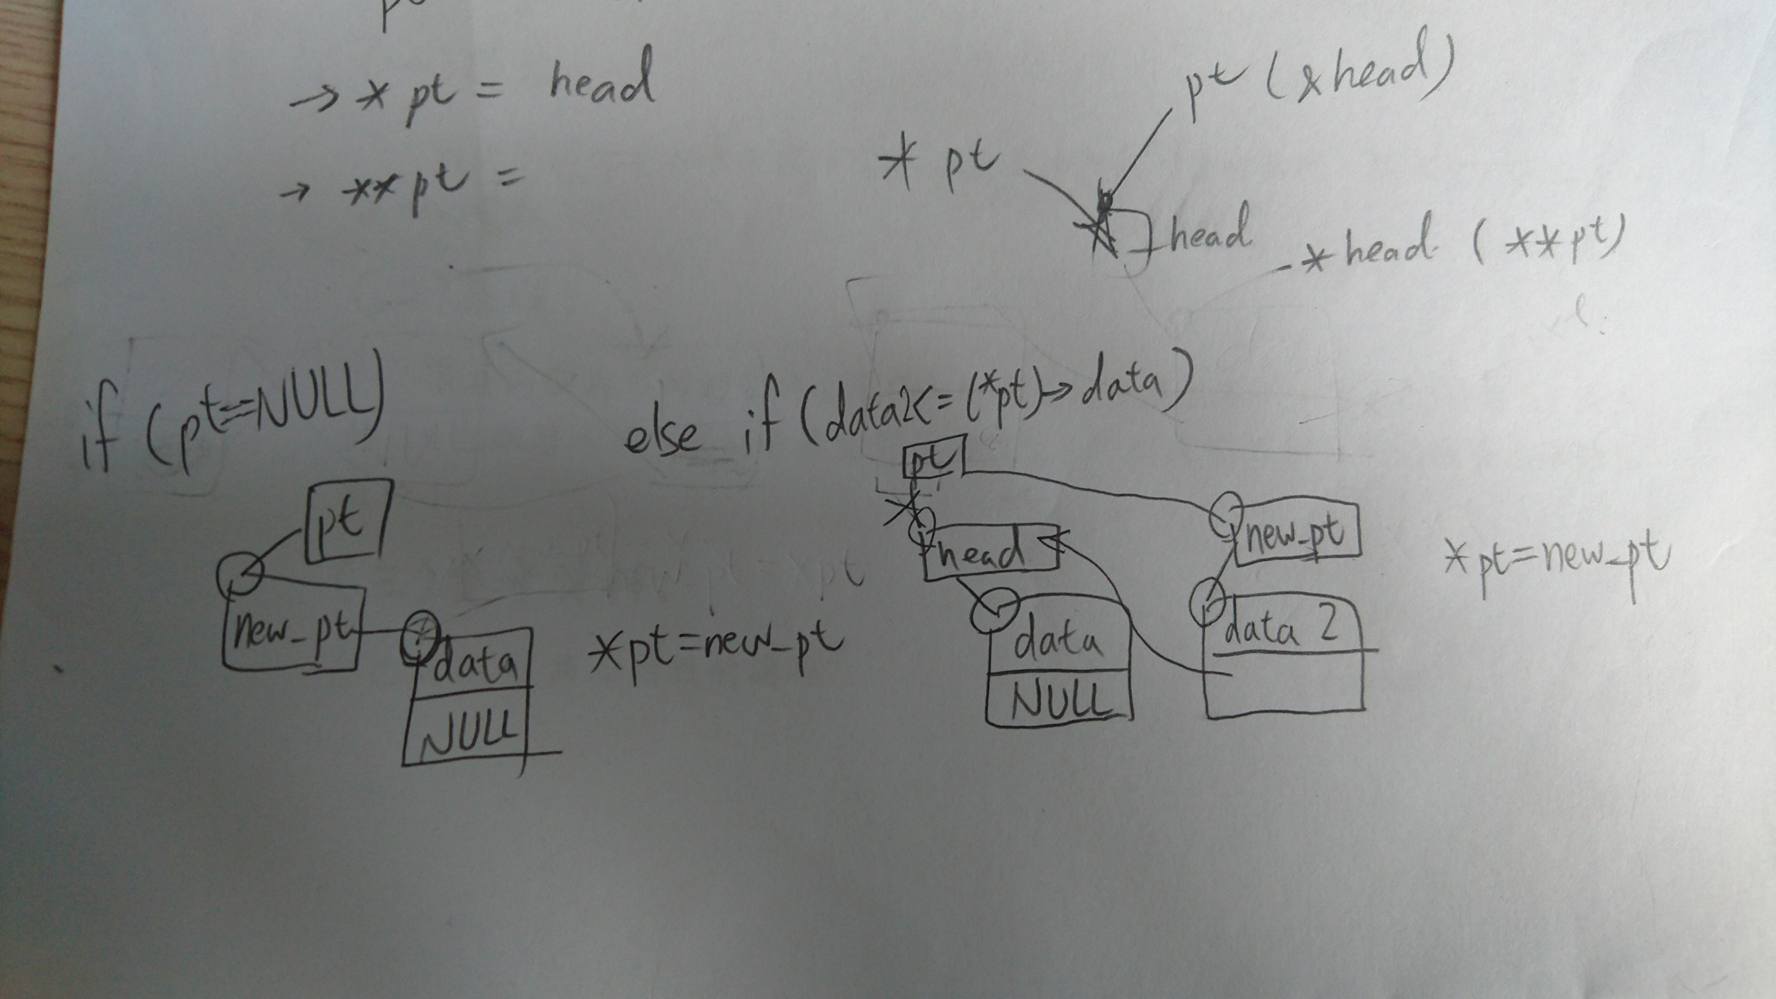 → * pt = head
→ **pt =
pt (&head)
* pt
head
*head (**pt)
if (pt==NULL)
pt
new_pt
data
NULL
*pt=new_pt
else if (data2<=(*pt)→data)
pt
head
data
NULL
new_pt
data 2
*pt=new_pt